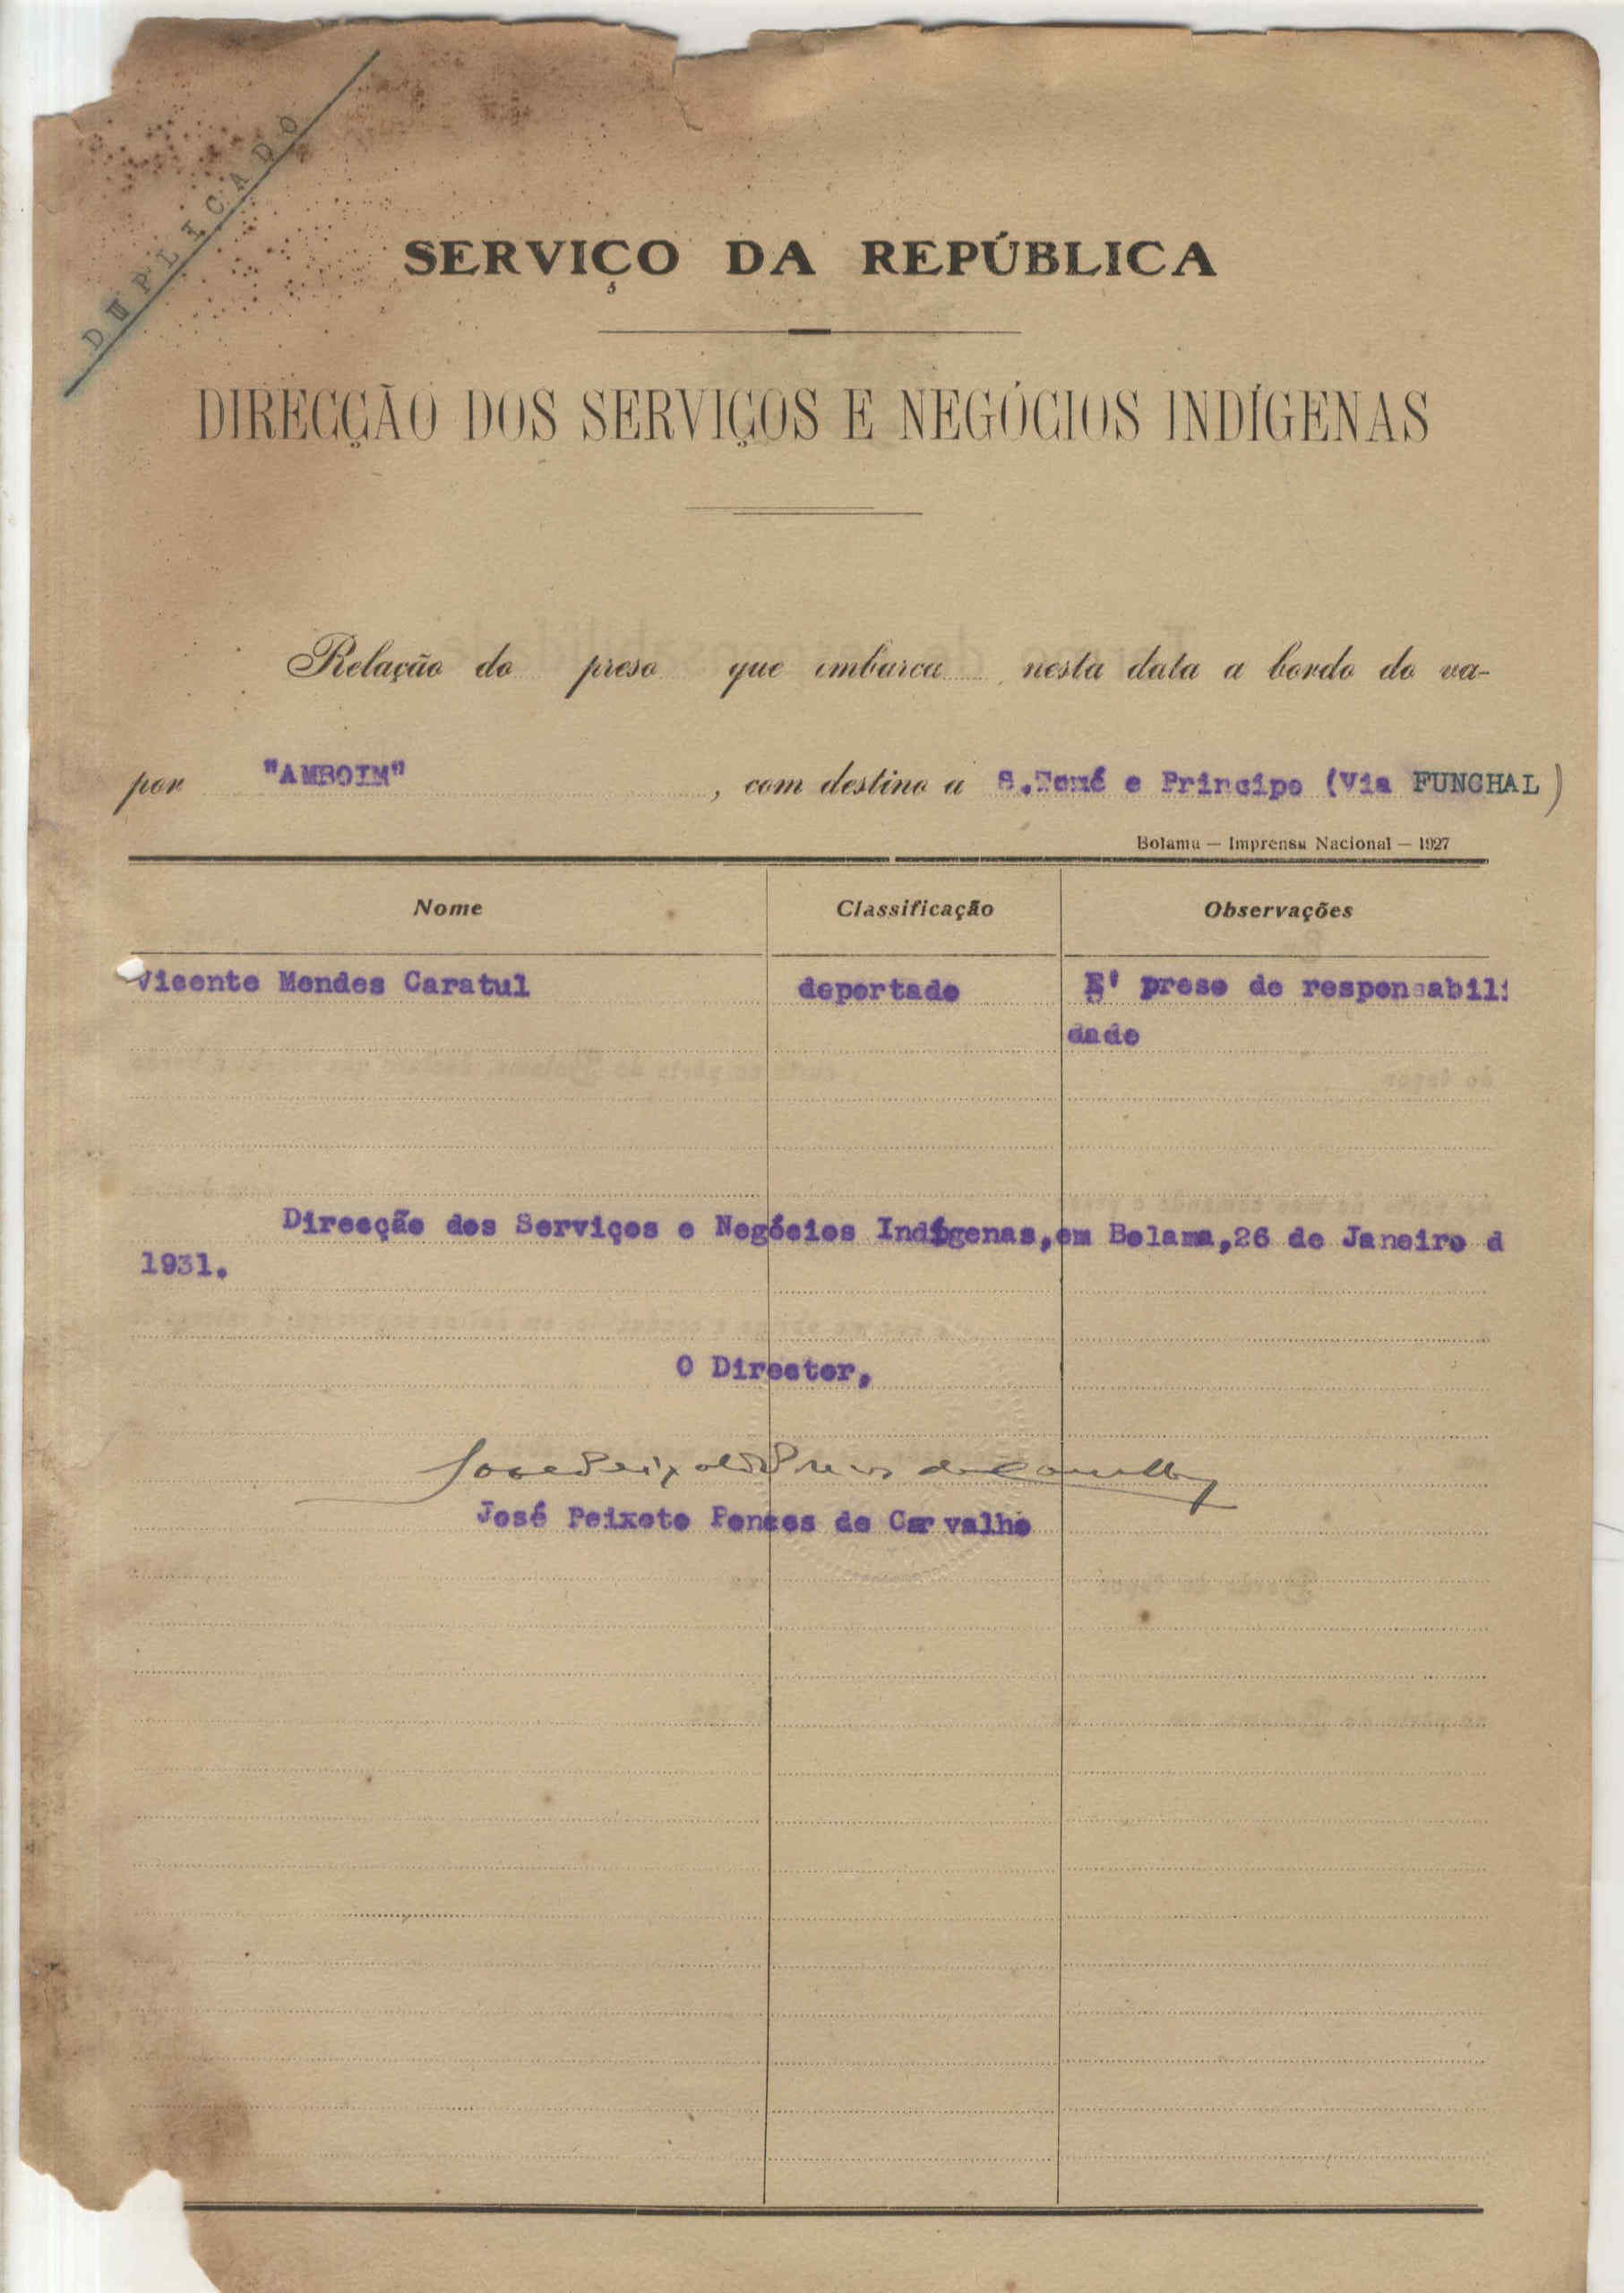 DUPLICADO
SERVIÇO DA REPÚBLICA
DIRECÇÃO DOS SERVIÇOS E NEGÓCIOS INDÍGENAS
Relação do preso que embarca nesta data a bordo do va-
por "AMBOIM", com destino a S.Tomé e Principe (Via FUNCHAL)
Bolama — Imprensa Nacional — 1927
Nome Classificação Observações
Vicente Mendes Caratul deportado E' preso de responsabili
dade
Direcção dos Serviços e Negócios Indígenas,em Bolama,26 de Janeiro d
1931.
O Director,
José Peixoto Ponces de Carvalho